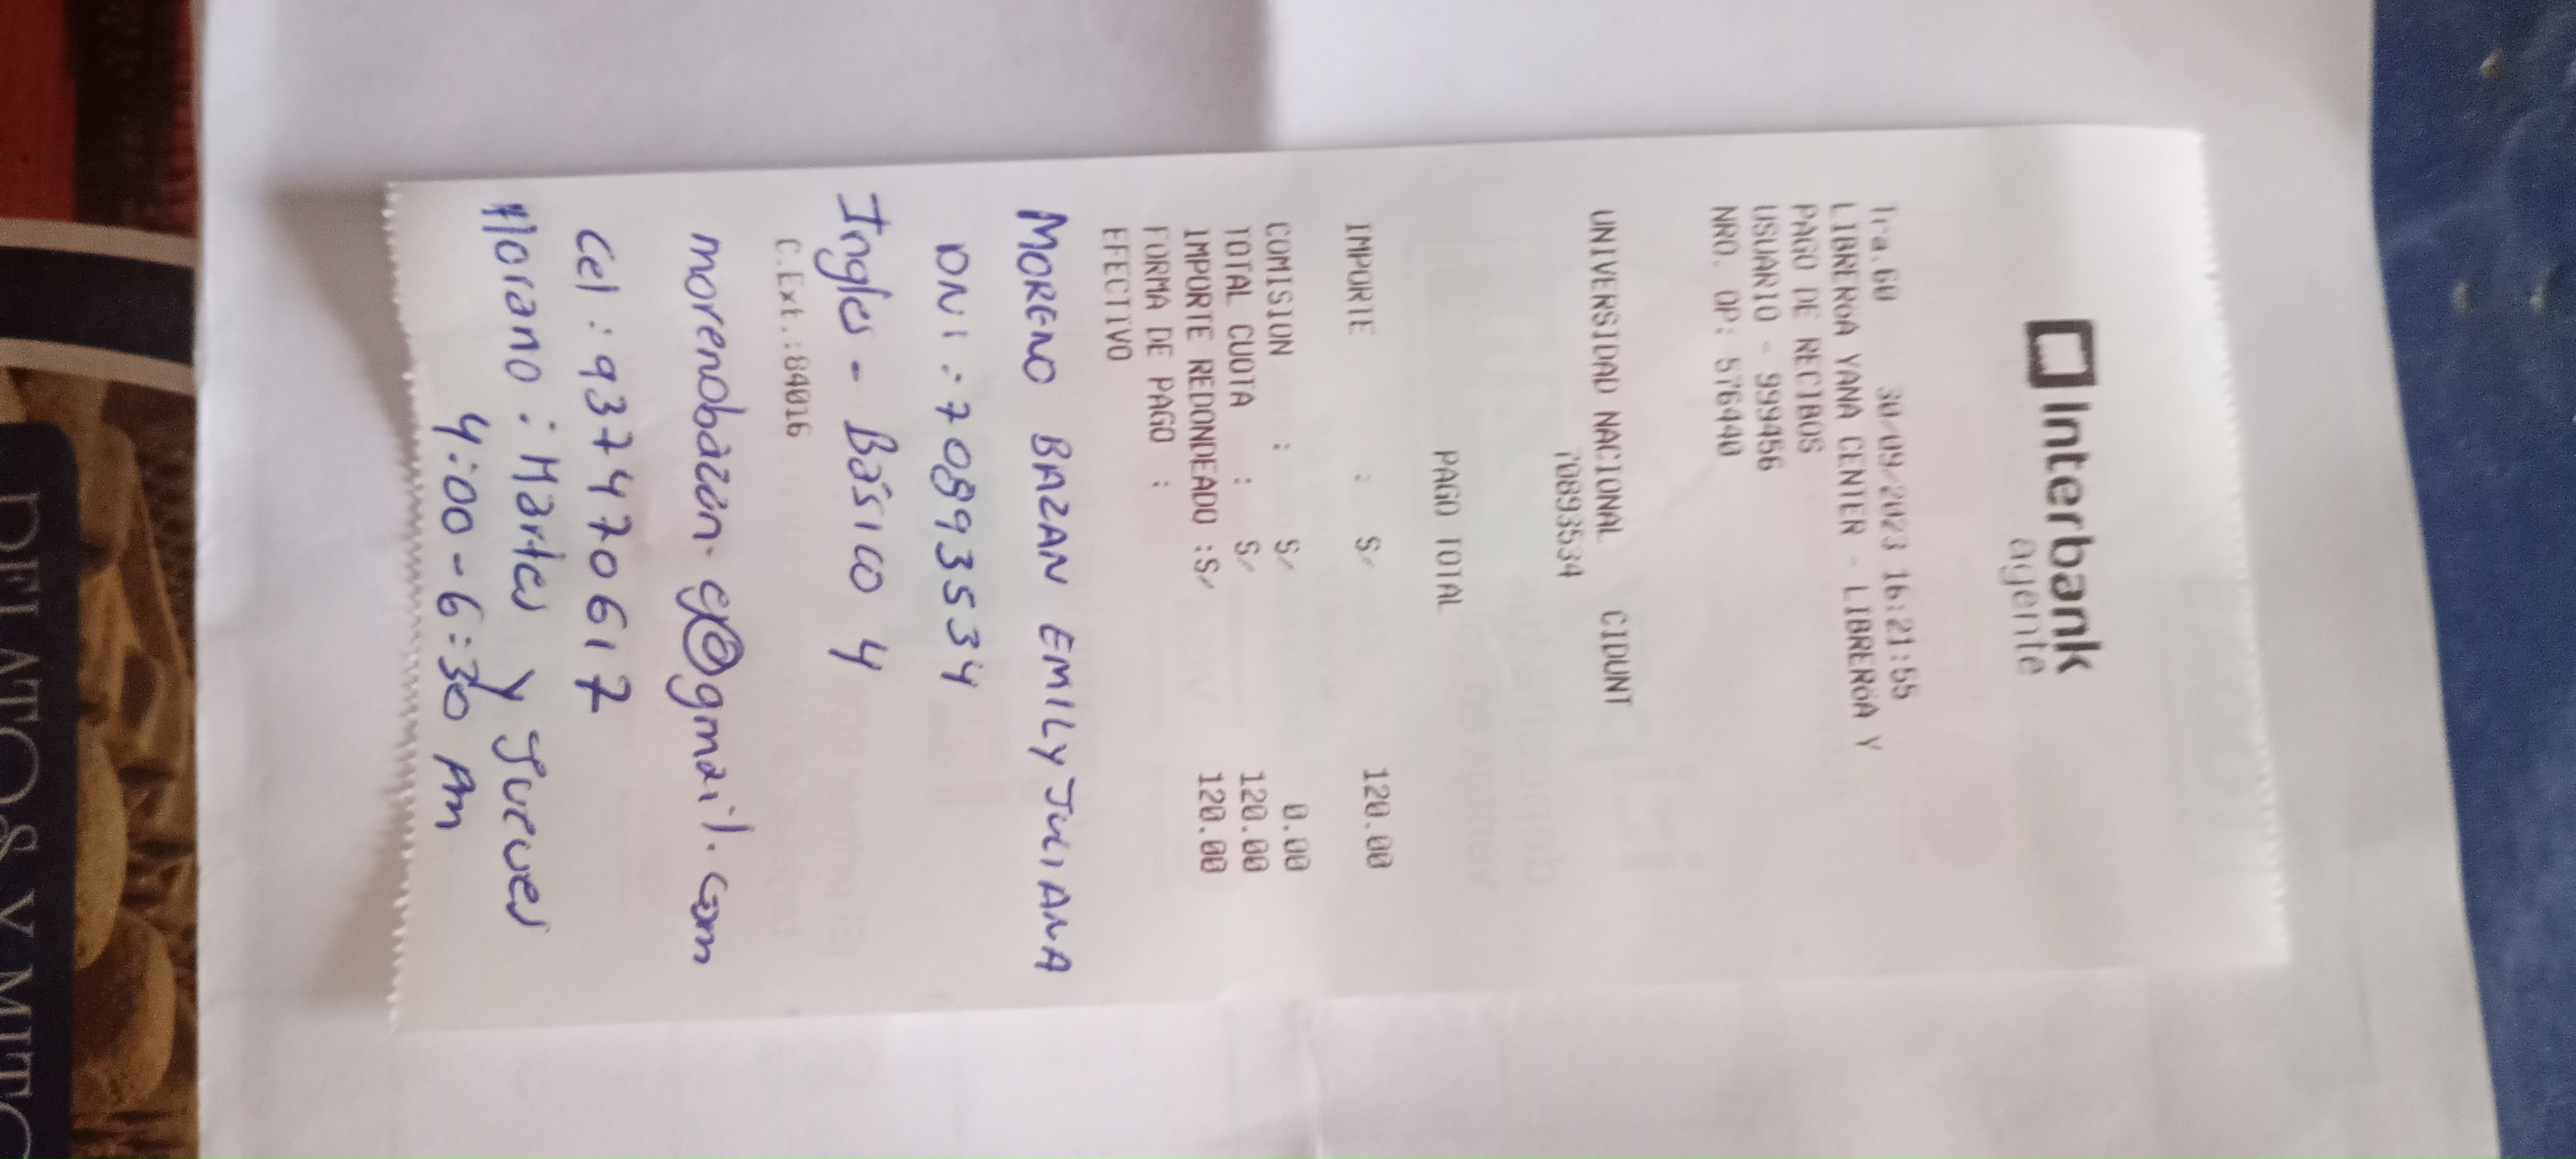 Interbank
agente
Tra.60 30/09/2023 16:21:55
LIBREROA YANA CENTER - LIBREROA Y
PAGO DE RECIBOS
USUARIO - 999456
NRO. OP: 576440
UNIVERSIDAD NACIONAL CIDUNT
70893534
PAGO TOTAL
IMPORTE : S/ 120.00
COMISION : S/ 0.00
TOTAL CUOTA : S/ 120.00
IMPORTE REDONDEADO :S/ 120.00
FORMA DE PAGO :
EFECTIVO
MORENO BAZAN EMILY JULIANA
DNI : 70893534
Ingles - Básico 4
C.Ext.:84016
morenobazan.ej@gmail.com
Cel : 937470617
Horario : Martes y Jueves
4:00 - 6:30 Am
RELATOS Y MITO